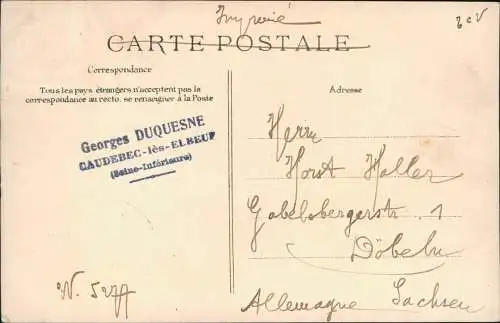 Imprimé
CARTE POSTALE
Correspondance
Tous les pays étrangers n'acceptent pas la
correspondance au recto. se renseigner à la Poste
Georges DUQUESNE
CAUDEBEC-lès-ELBEUF
(Seine-Inférieure)
Adresse
Herrn
Horst Haller
Gabelsbergerstr. 1
Döbeln
Allemagne Sachsen